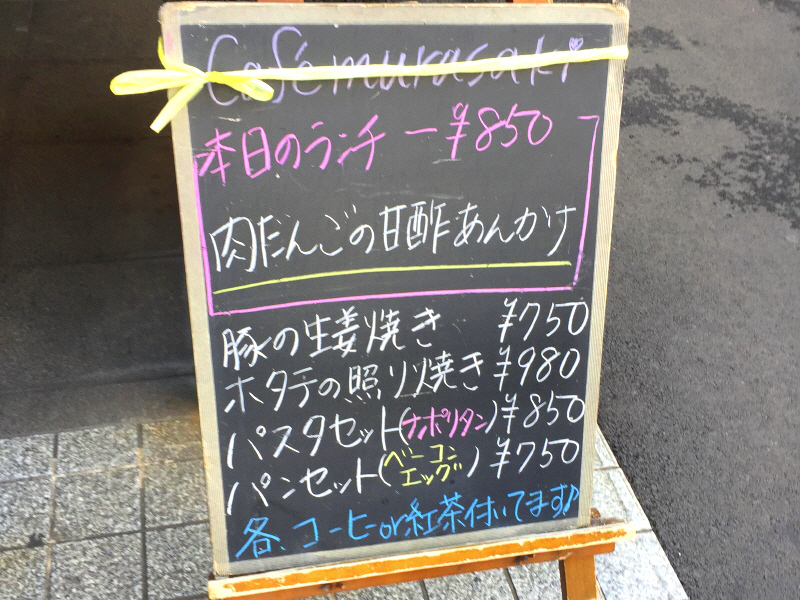 Café murasaki
本日のランチ ー ¥850
肉だんごの甘酢あんかけ
豚の生姜焼き ¥750
ホタテの照り焼き ¥980
パスタセット(ナポリタン) ¥850
パンセット(ベーコンエッグ) ¥750
各、コーヒーor紅茶付いてます♪